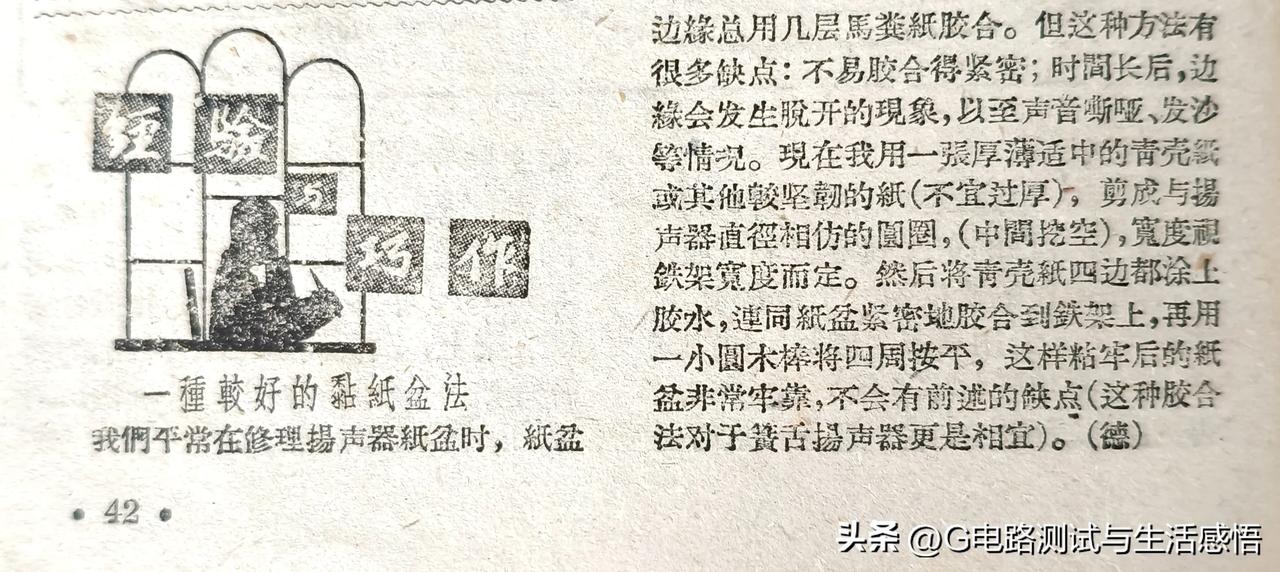 經驗与巧作
一種較好的黏紙盆法
我們平常在修理揚声器紙盆时，紙盆
边緣总用几层馬粪紙胶合。但这种方法有
很多缺点：不易胶合得紧密；时間长后，边
緣会发生脫开的現象，以至声音嘶哑、发沙
等情况。現在我用一張厚薄适中的靑壳紙
或其他較坚韌的紙（不宜过厚），剪成与揚
声器直徑相仿的圓圈，（中間挖空），寬度視
鉄架寬度而定。然后将靑壳紙四边都涂上
胶水，連同紙盆紧密地胶合到鉄架上，再用
一小圓木棒将四周按平，这样粘牢后的紙
盆非常牢靠，不会有前述的缺点（这种胶合
法对于簧舌揚声器更是相宜）。（德）
• 42 •
头条 @G电路测试与生活感悟